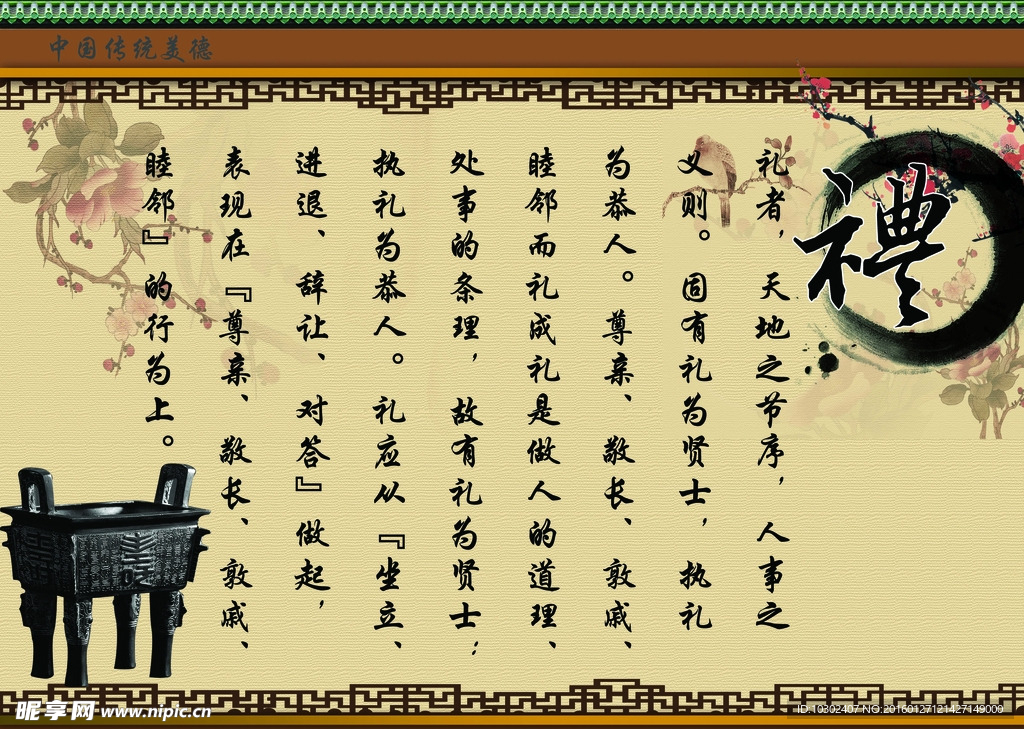 中国传统美德
禮
礼者，天地之节序，人事之
义则。固有礼为贤士，执礼
为恭人。尊亲、敬长、敦戚、
睦邻而礼成礼是做人的道理、
处事的条理，故有礼为贤士；
执礼为恭人。礼应从『坐立、
进退、辞让、对答』做起，
表现在『尊亲、敬长、敦戚、
睦邻』的行为上。
昵享网 www.nipic.cn
ID:10302407 NO:20160127121427149009